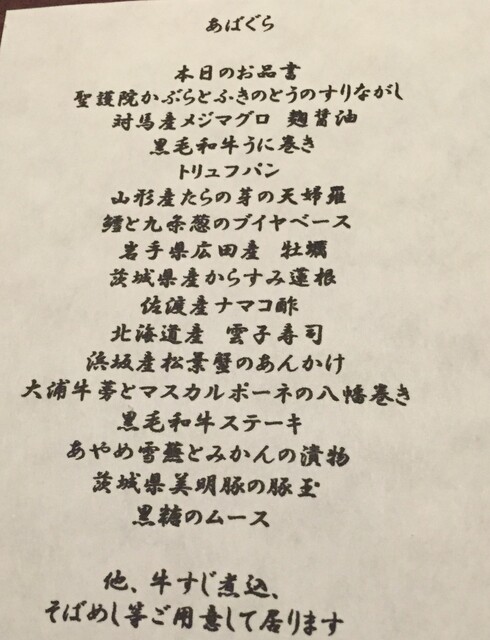 あばぐら
本日のお品書
聖護院かぶらとふきのとうのすりながし
対馬産メジマグロ 麹醤油
黒毛和牛うに巻き
トリュフパン
山形産たらの芽の天婦羅
鱈と九条葱のブイヤベース
岩手県広田産 牡蠣
茨城県産からすみ蓮根
佐渡産ナマコ酢
北海道産 雲子寿司
浜坂産松葉蟹のあんかけ
大浦牛蒡とマスカルポーネの八幡巻き
黒毛和牛ステーキ
あやめ雪蕪とみかんの漬物
茨城県美明豚の豚玉
黒糖のムース
他、牛すじ煮込、
そばめし等ご用意して居ります